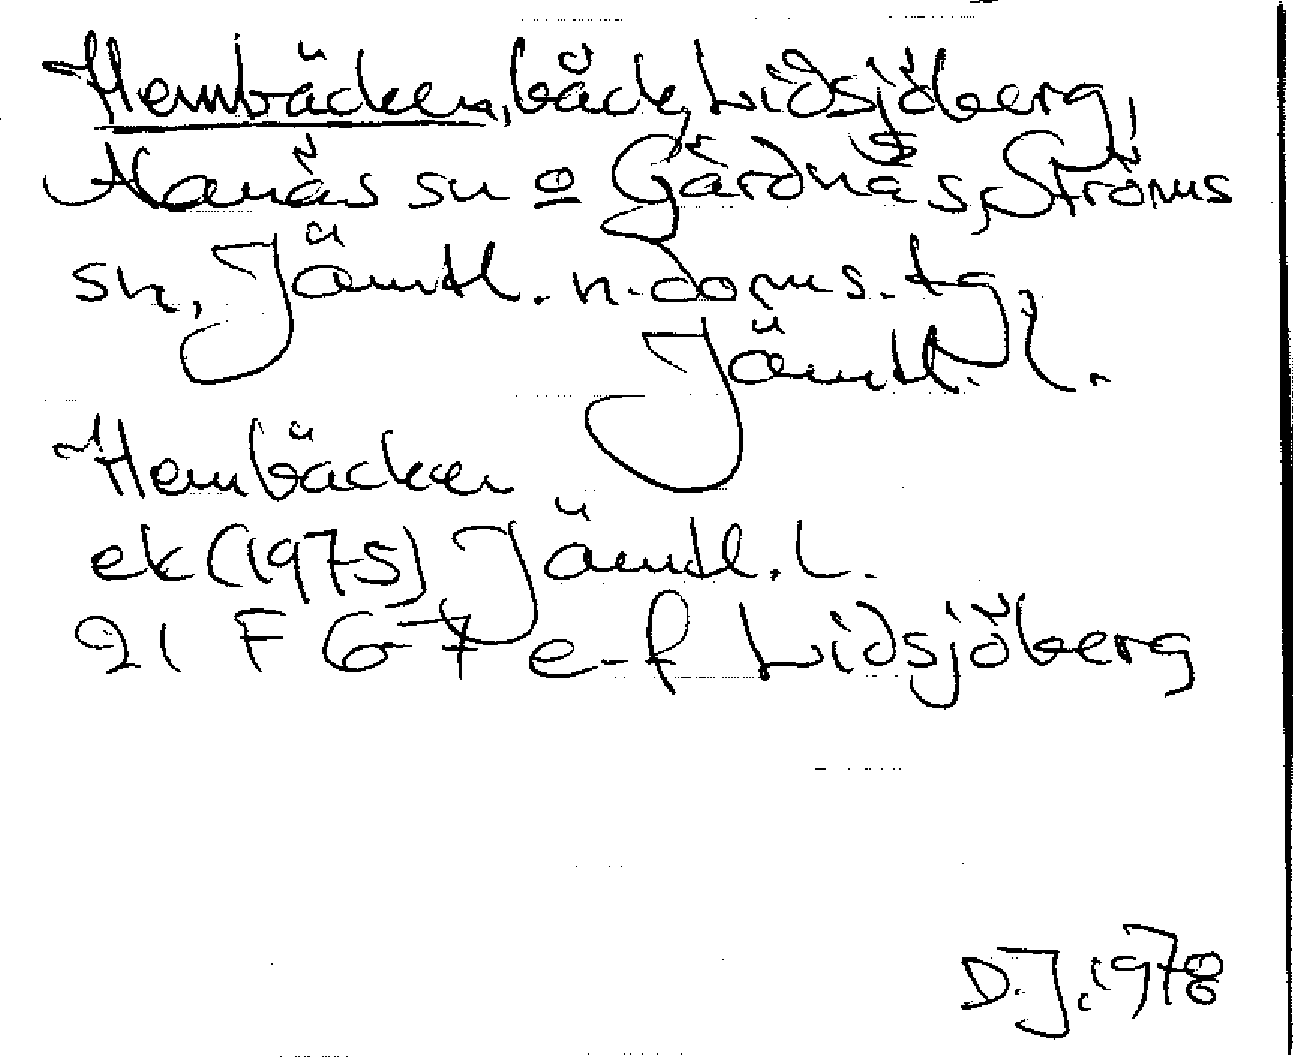 Hembäcken, bäck, Lidsjöberg,
Alanäs sn o Gärdnäs, Ströms
sn, Jämtl. n. doms. tg,
Jämtl. l.
Hembäcken
ek (1975) Jämtl. L.
21 F 6-7 e-f Lidsjöberg
D.J. 1978